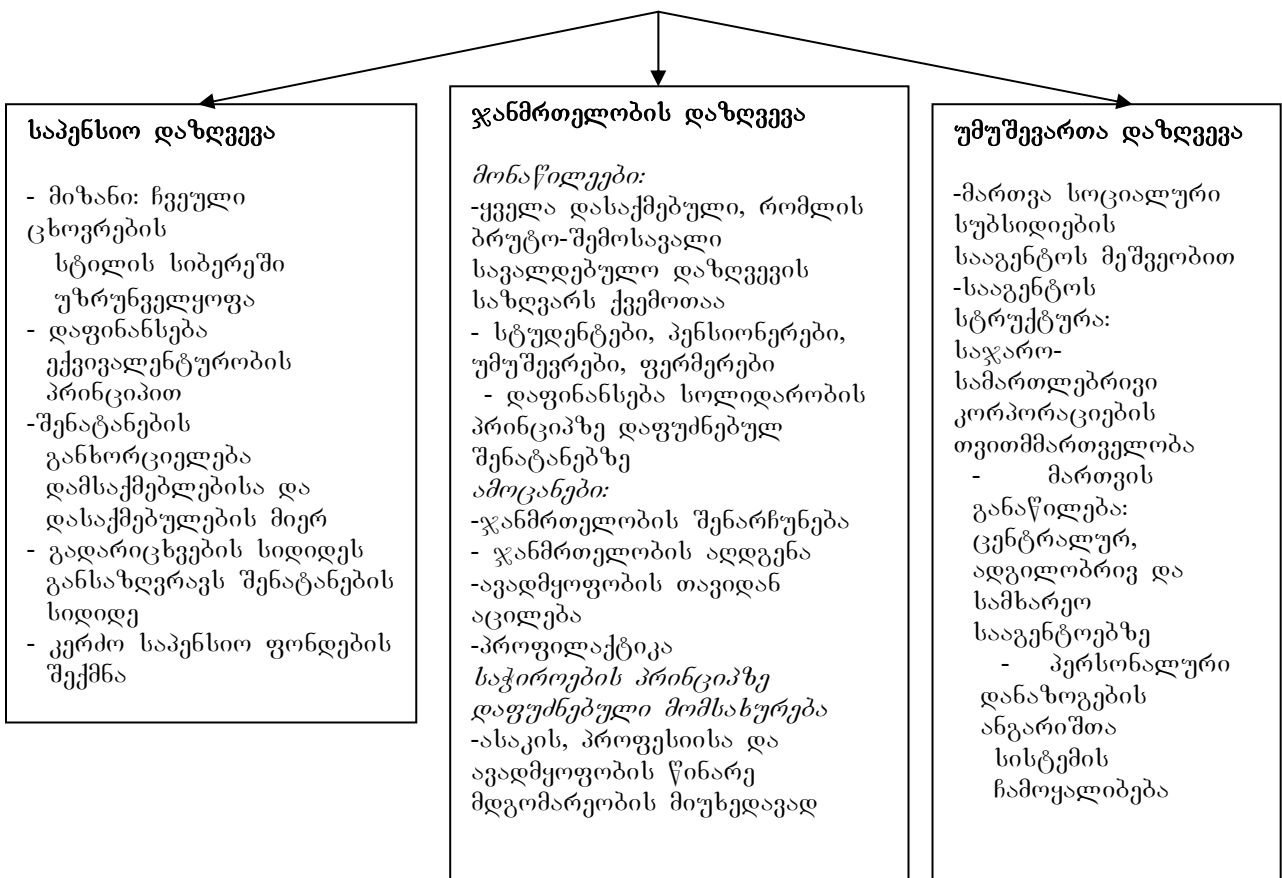 საპენსიო დაზღვევა
- მიზანი: ჩვეული
ცხოვრების
სტილის სიბერეში
უზრუნველყოფა
- დაფინანსება
ექვივალენტურობის
პრინციპით
-შენატანების
განხორციელება
დამსაქმებლებისა და
დასაქმებულების მიერ
- გადარიცხვების სიდიდეს
განსაზღვრავს შენატანების
სიდიდე
- კერძო საპენსიო ფონდების
შექმნა
ჯანმრთელობის დაზღვევა
მონაწილეები:
-ყველა დასაქმებული, რომლის
ბრუტო-შემოსავალი
სავალდებულო დაზღვევის
საზღვარს ქვემოთაა
- სტუდენტები, პენსიონერები,
უმუშევრები, ფერმერები
- დაფინანსება სოლიდარობის
პრინციპზე დაფუძნებულ
შენატანებზე
ამოცანები:
-ჯანმრთელობის შენარჩუნება
- ჯანმრთელობის აღდგენა
-ავადმყოფობის თავიდან
აცილება
-პროფილაქტიკა
საჭიროების პრინციპზე
დაფუძნებული მომსახურება
-ასაკის, პროფესიისა და
ავადმყოფობის წინარე
მდგომარეობის მიუხედავად
უმუშევართა დაზღვევა
-მართვა სოციალური
სუბსიდიების
სააგენტოს მეშვეობით
-სააგენტოს
სტრუქტურა:
საჯარო-
სამართლებრივი
კორპორაციების
თვითმმართველობა
- მართვის
განაწილება:
ცენტრალურ,
ადგილობრივ და
სამხარეო
სააგენტოებზე
- პერსონალური
დანაზოგების
ანგარიშთა
სისტემის
ჩამოყალიბება